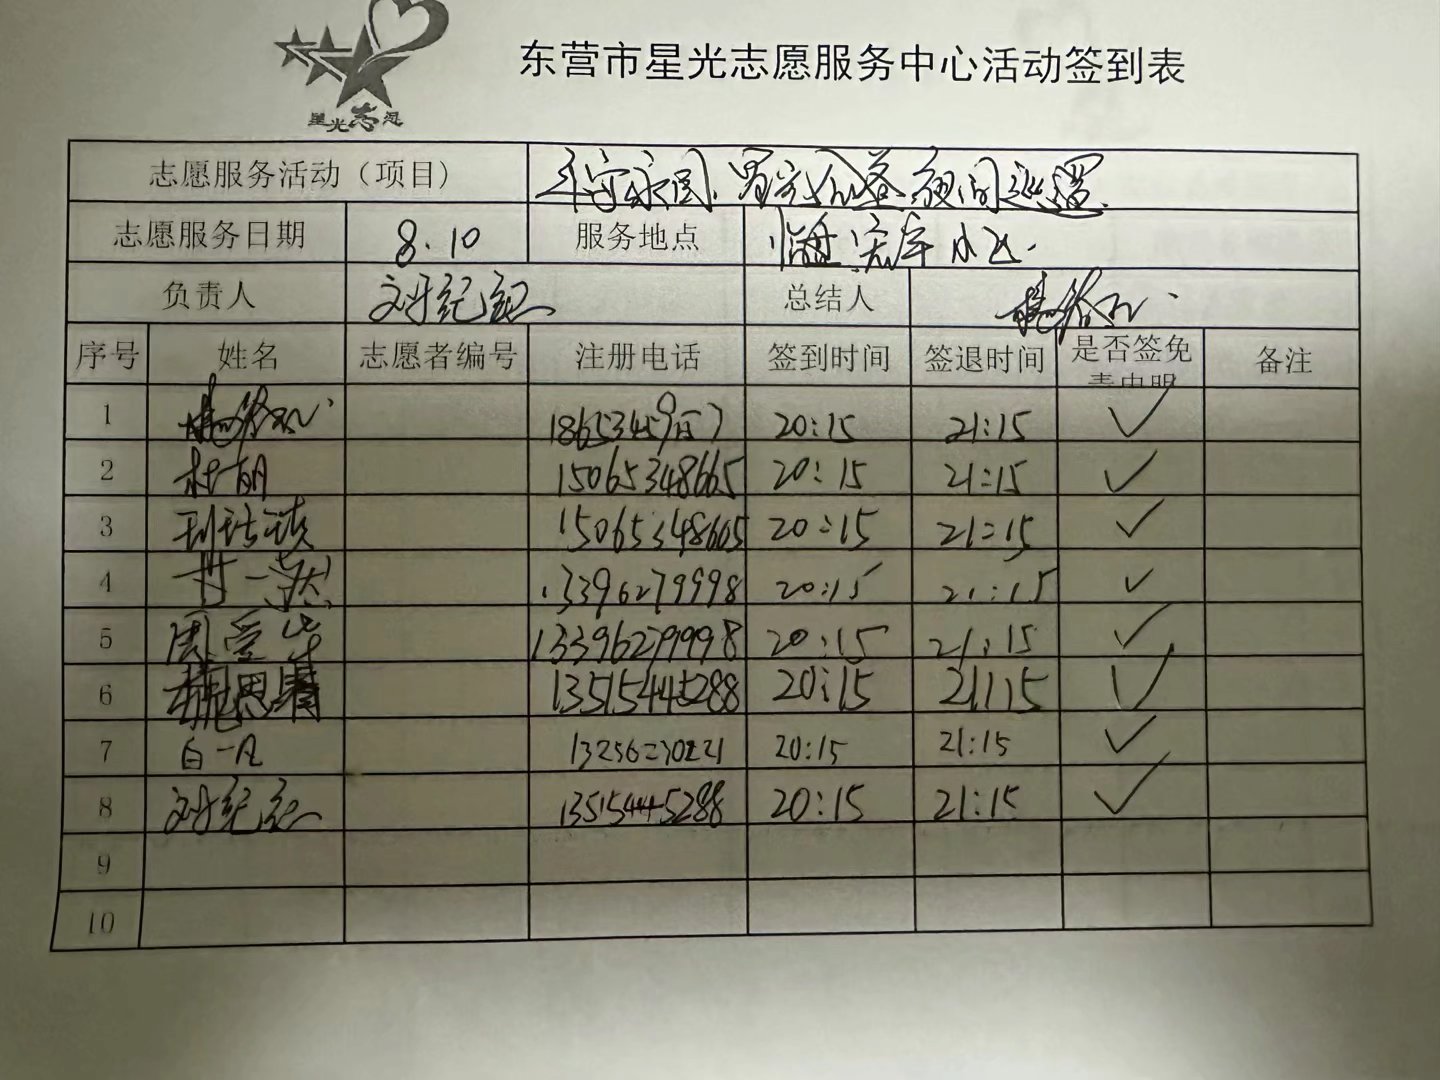 星光志愿
东营市星光志愿服务中心活动签到表
志愿服务活动（项目） 夜间巡逻
志愿服务日期 8.10 服务地点 小区
负责人 刘纪 总结人
序号 姓名 志愿者编号 注册电话 签到时间 签退时间 是否签免责申明 备注
1 20:15 21:15 ✓
2 杜明 15065348665 20:15 21:15 ✓
3 15065348665 20:15 21:15 ✓
4 一 13396279998 20:15 21:15 ✓
5 周爱华 13396279998 20:15 21:15 ✓
6 思 13515445288 20:15 21:15 ✓
7 白一凡 13256230221 20:15 21:15 ✓
8 刘纪 13515445288 20:15 21:15 ✓
9
10